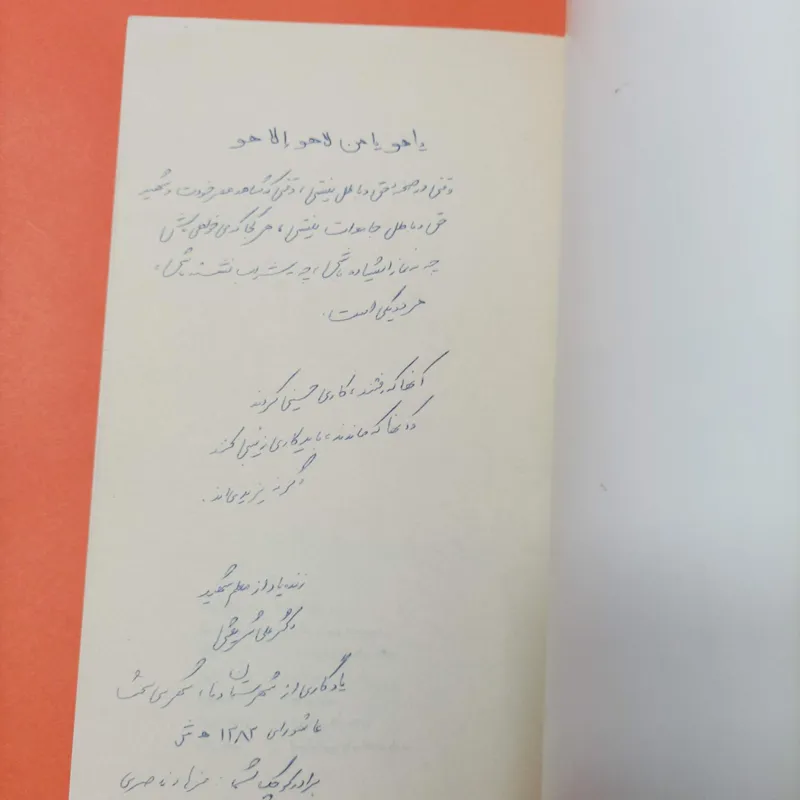 یا هو یا من لا هو الا هو
وقتی در صحنه حق و باطل نیستی، وقتی که شاهد عصر خودت و شهید
حق و باطل جامعه‌ات نیستی، هر کجا که می‌خواهی باش
چه به نماز ایستاده باشی، چه به شراب نشسته باشی،
هر دو یکی است.
آنها که رفتند، کاری حسینی کردند
و آنها که ماندند، باید کاری زینبی کنند
وگرنه یزیدی‌اند.
زنده یاد از معلم شهید
دکتر علی شریعتی
یادگاری از شهرستان
عاشورای ۱۳۸۲ ه‍ ش
برادر کوچک شما: